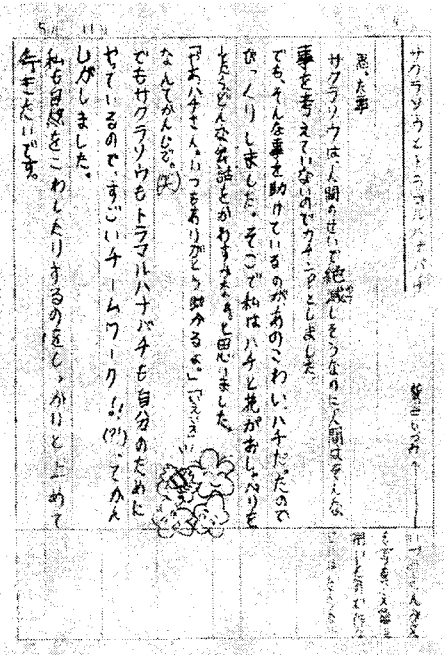 サクラソウとトラマルハナバチ
思った事
サクラソウは、人間のせいで絶滅しそうなのに、人間はそんな
事を考えていないのでカチンとしました。
でも、そんな事を助けているのがあのこわいハチだったので
びっくりしました。そこで私はハチと花がおしゃべりを
したらどんな会話をかわすのかなぁと思いました。
「やあハチさん。いつもありがとう助かるよ。」「いえいえ」
なんてかんじで。(笑)
でもサクラソウもトラマルハナバチも自分のために
やっているので、すごいチームワーク!!(?!)ってかん
じがしました。
私も自然をこわしたりするのをしっかりと止めて
行きたいです。